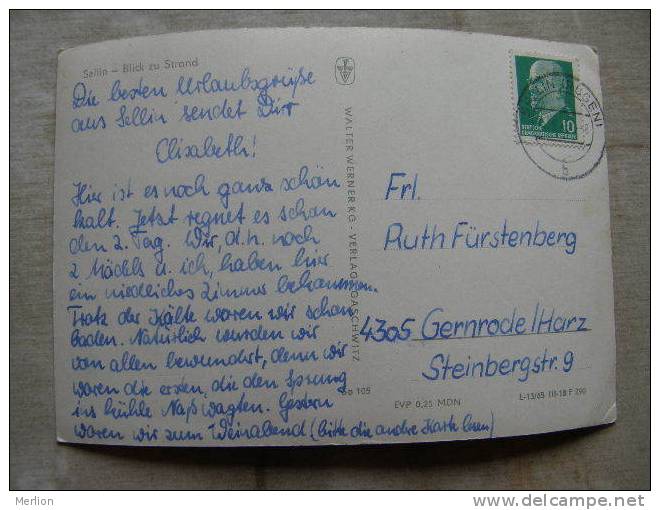 Sellin – Blick zu Strand
Die besten Urlaubsgrüße
aus Sellin sendet Dir
Elisabeth!
Hier ist es noch ganz schön
kalt. Jetzt regnet es schon
den 2. Tag. Wir, d.h. noch
2 Mädels u. ich, haben hier
ein niedliches Zimmer bekommen.
Trotz der Kälte waren wir schon
baden. Natürlich wurden wir
von allen bewundert, denn wir
waren die ersten, die den Sprung
ins kühle Naß wagten. Gestern
waren wir zum Weinabend (bitte die andre Karte lesen)
WALTER WERNER KG · VERLAG · GASCHWITZ
105
EVP 0,25 MDN
L-13/65 III-18 F 290
DEUTSCHE
DEMOKRATISCHE REPUBLIK
10
SELLIN (RÜGEN)
b
Frl.
Ruth Fürstenberg
4305 Gernrode/Harz
Steinbergstr. 9
Merlion
www.delcampe.net